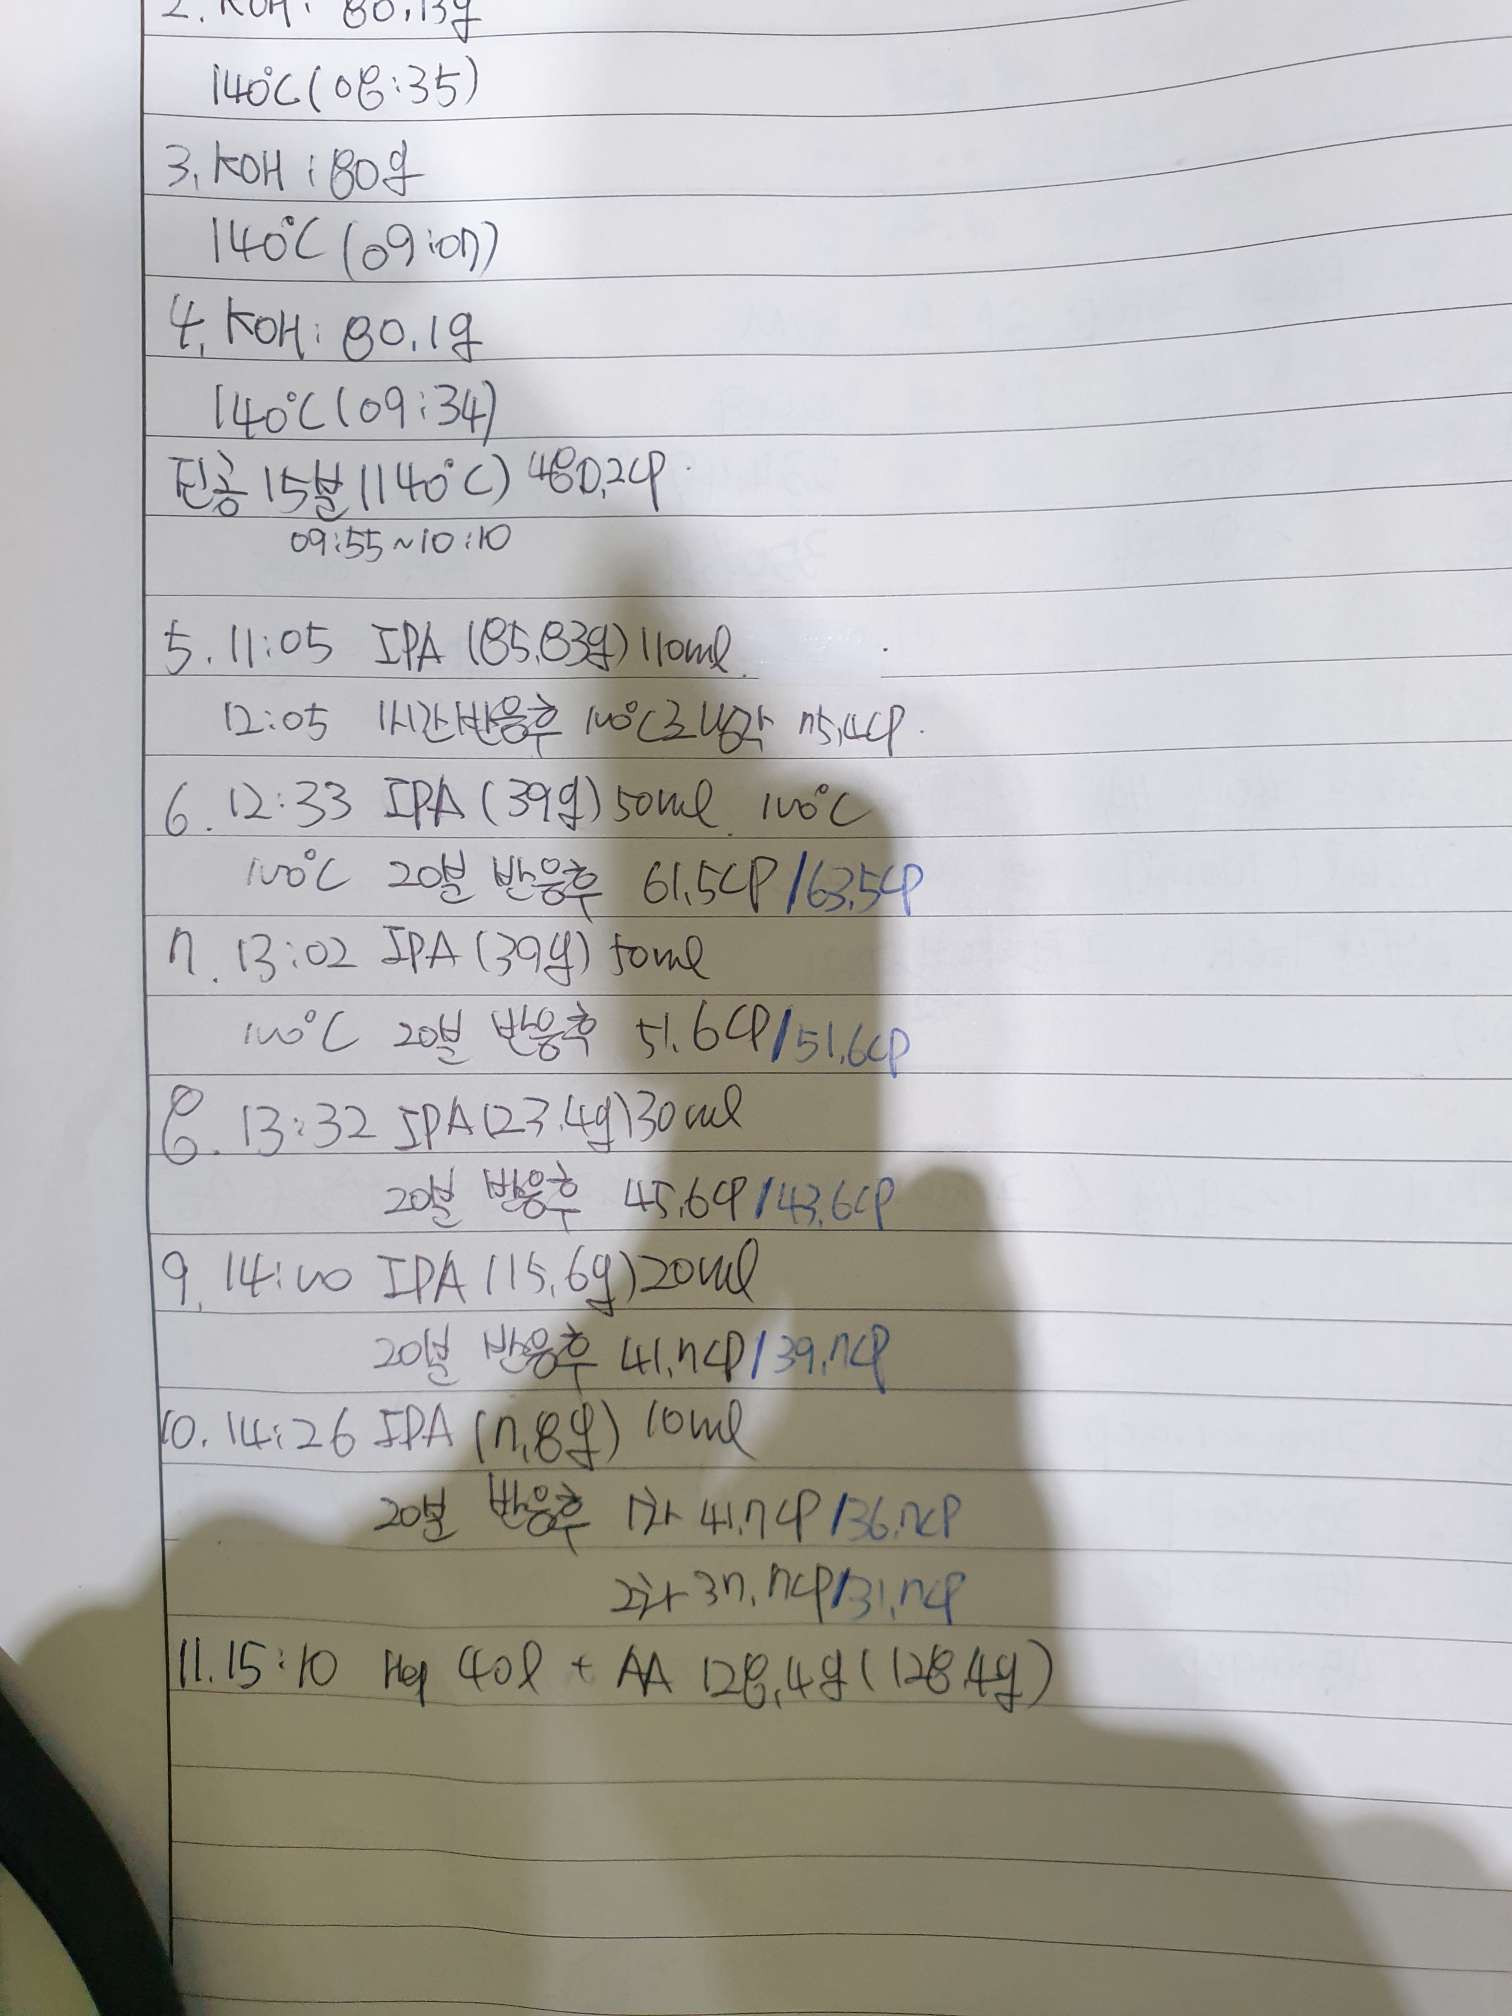 2. KOH : 80.13g
140℃ (08:35)
3. KOH : 80g
140℃ (09:07)
4. KOH : 80.1g
140℃ (09:34)
진공 15분 (140℃) 480.2cp
09:55~10:10
5. 11:05 IPA (85.83g) 110ml
12:05 1시간반응후 100℃로 냉각 75.4cp
6. 12:33 IPA (39g) 50ml 100℃
100℃ 20분 반응후 61.5cp/63.5cp
7. 13:02 IPA (39g) 50ml
100℃ 20분 반응후 51.6cp/51.6cp
8. 13:32 IPA (23.4g) 30ml
20분 반응후 45.6cp/43.6cp
9. 14:00 IPA (15.6g) 20ml
20분 반응후 41.7cp/39.7cp
10. 14:26 IPA (7.8g) 10ml
20분 반응후 1차 41.7cp/36.7cp
2차 37.7cp/31.7cp
11. 15:10 Hep 40l + AA 128.4g (128.4g)